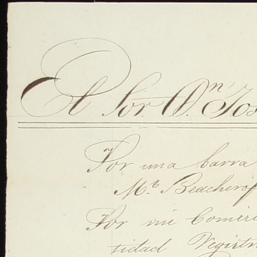 El Sor. Dn. Jos
Por una barra
Mr. Beacherof
Por mi Comi
tidad Registr